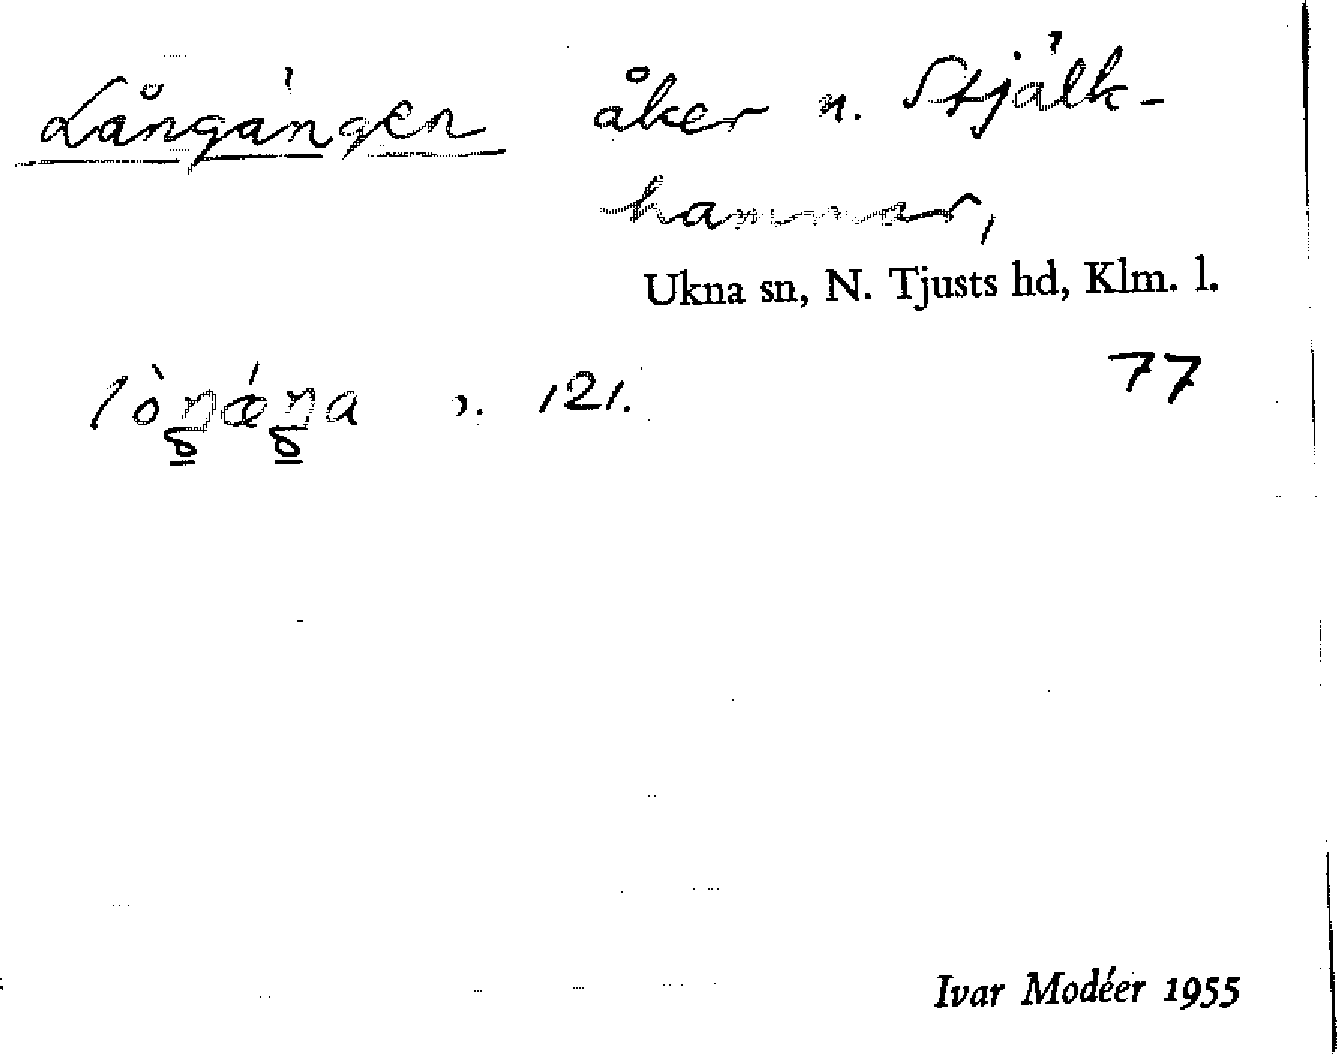 Långängen åker n. Stjälk-
hammar,
Ukna sn, N. Tjusts hd, Klm. l.
77
lòŋǽŋa 121.
Ivar Modéer 1955